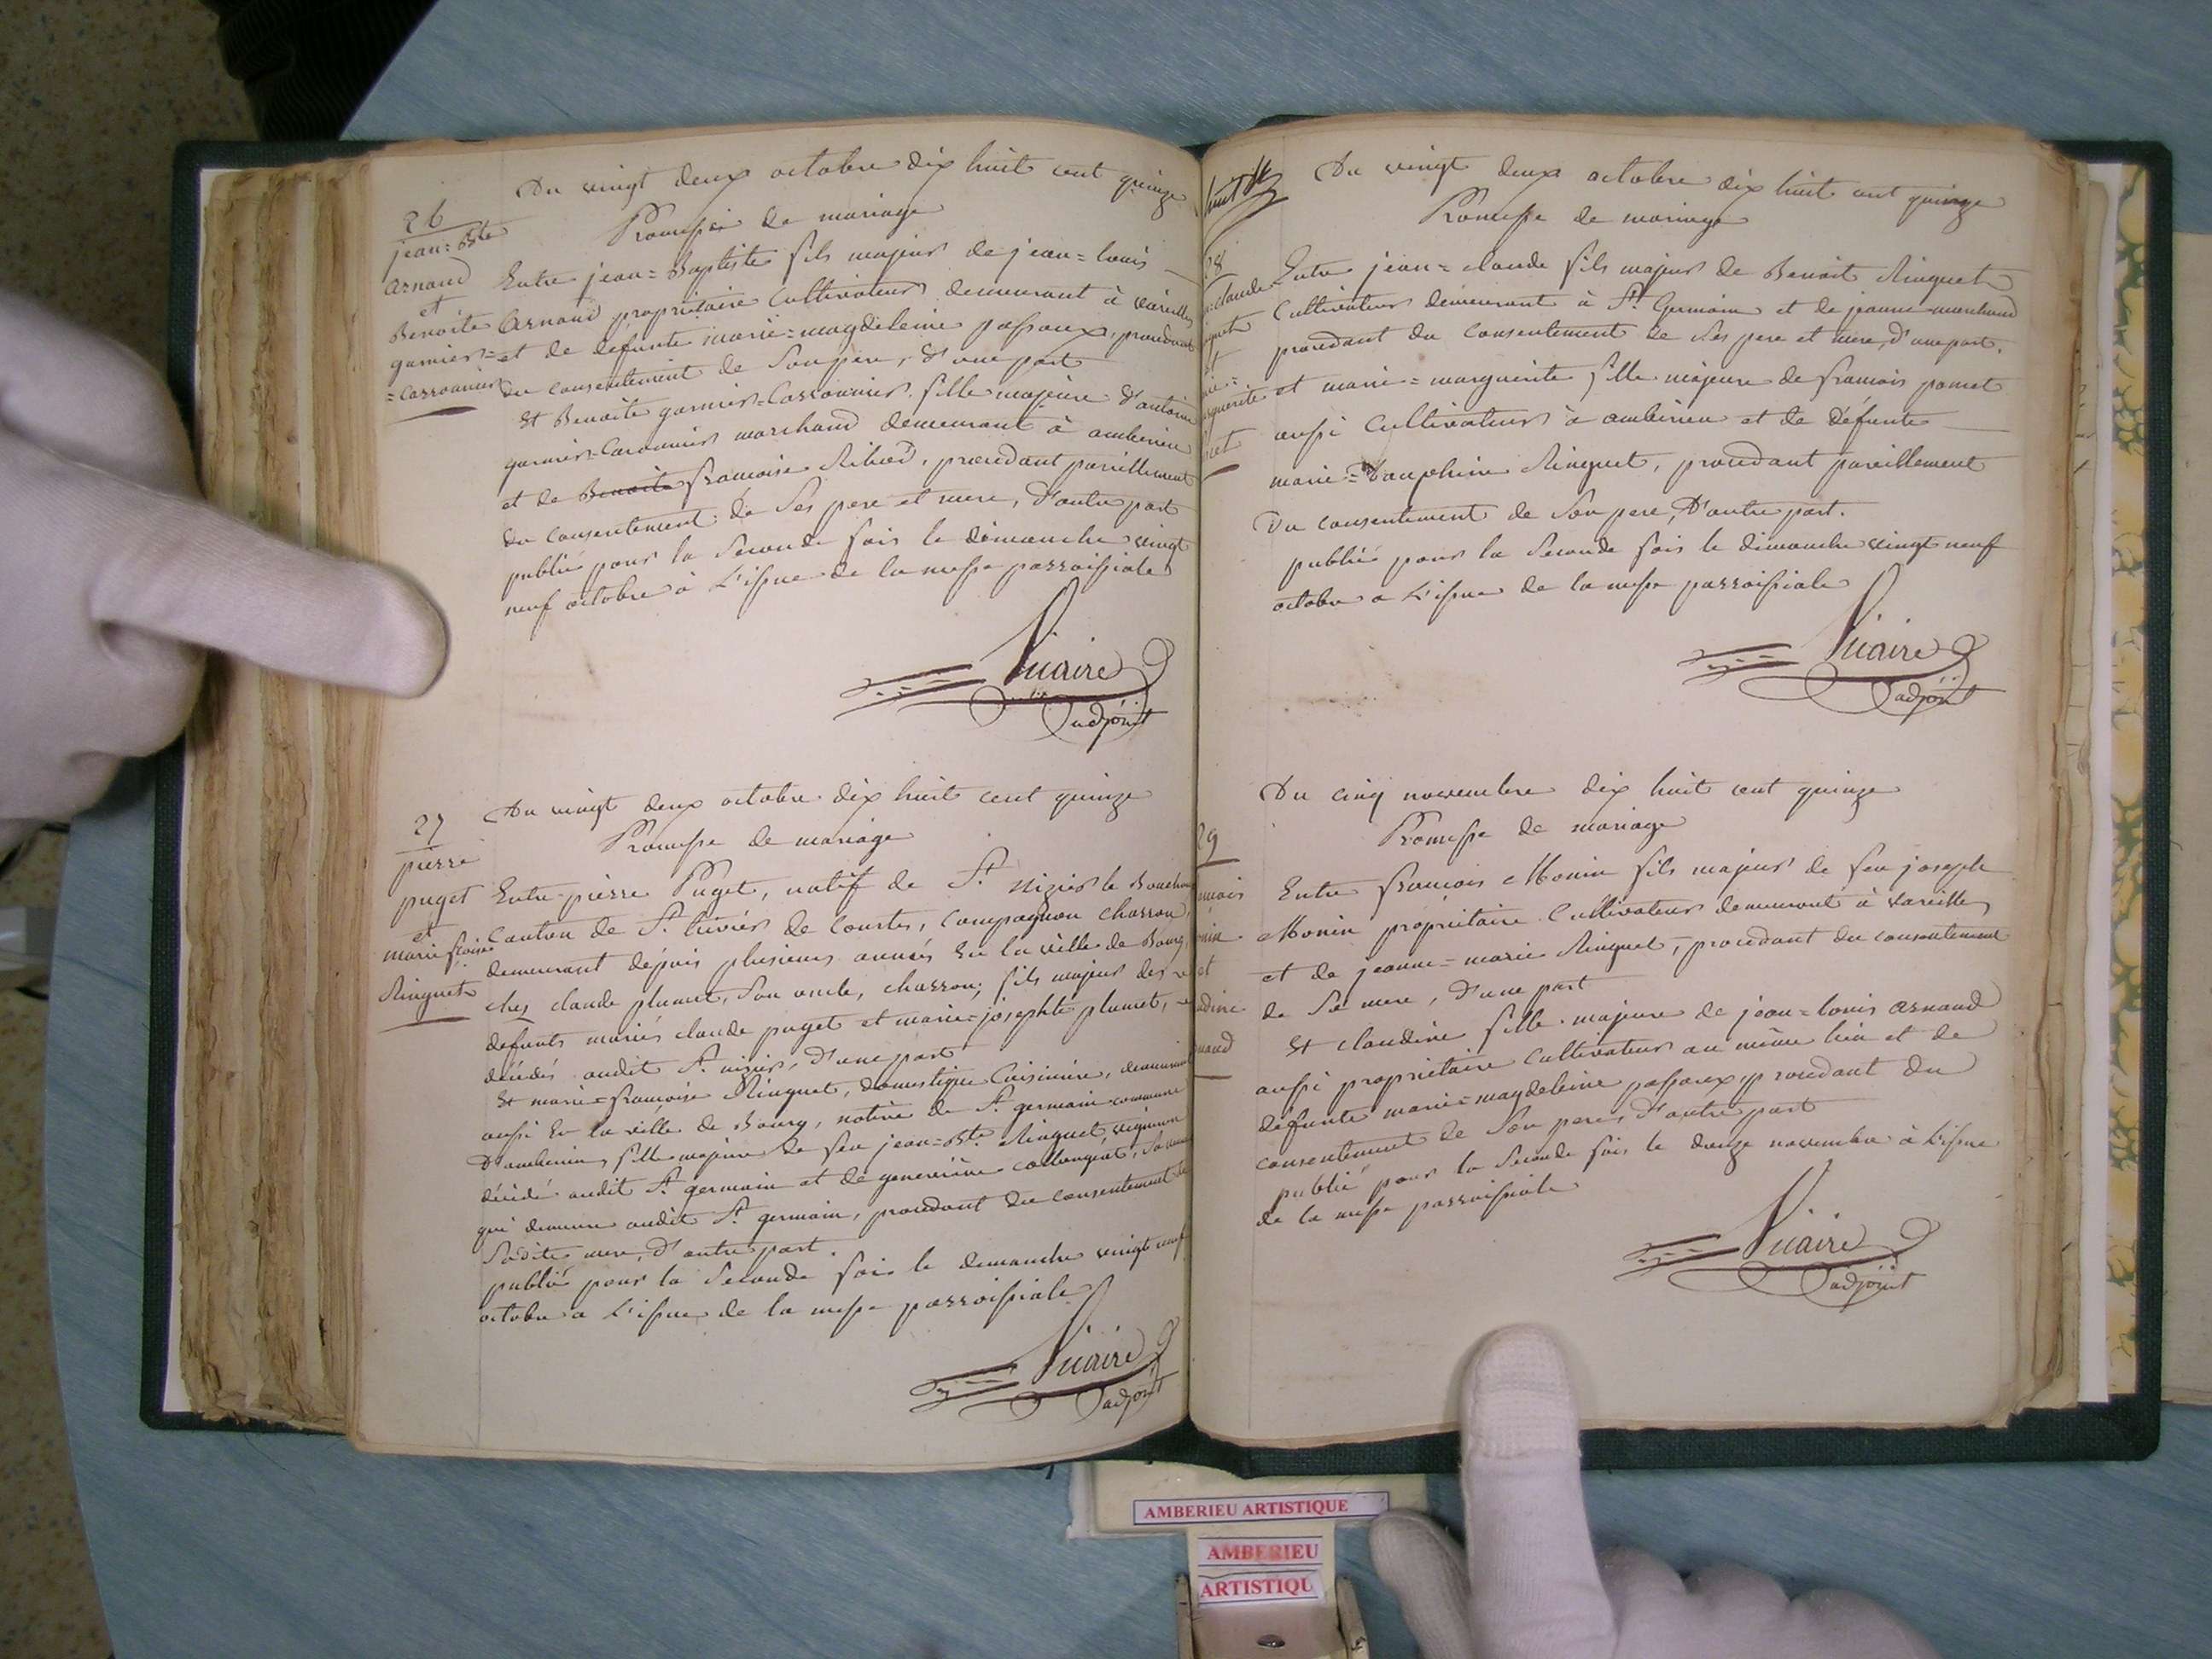 Du vingt deux octobre dix huit cent quinze
26
Promesse de mariage
jean=Bte
arnaud
et
Benoite
garnier=
=carronnier
Entre jean=Baptiste fils majeur de jean=louis
arnaud propriétaire Cultivateur demeurant à vareilles
et de défunte marie=magdeleine passaux, procédant
du consentement de Son père, d'une part
Et Benoite garnier=Carronnier fille majeure d'antoine
garnier-Caronnier marchand demeurant à ambérieu
et de Benoite francoise Ribod, procédant pareillement
du consentement de Ses pere et mere, d'autre part
publié pour la Seconde fois le dimanche vingt
neuf octobre à L'issue de la messe parroissiale
Vicaire
adjoint
Du vingt deux octobre dix huit cent quinze
27
Promesse de mariage
pierre
puget
et
marie fçoise
Ringuet
Entre pierre Puget, natif de St. nizier le Bouchoux
Canton de St. trivier de Courtes, Compagnon charron,
demeurant depuis plusieurs années En la ville de Bourg,
chez claude plumet, Son oncle, charron; fils majeur des
defunts mariés claude puget et marie=josephte plumet,
décédés audit St. nizier, d'une part
Et marie=francoise Ringuet, domestique Cuisinière, demeurant
aussi En la ville de Bourg, native de St. germain commune
D'ambérieu, fille majeure de feu jean=Bte Ringuet, vigneron
décédé audit St. germain et de geneviève collonget, Sa veuve
qui demeure audit St. germain, procédant du consentement de
Sadite mere, d'autre part.
publié pour la Seconde fois le dimanche vingt neuf
octobre a L'issue de la messe parroissiale
Vicaire
adjoint
huit
Du vingt deux octobre dix huit cent quinze
Promesse de mariage
28
claude
Ringuet
et
marguerite
pomet
Entre jean=claude fils majeur de Benoit Ringuet
Cultivateur demeurant à St. Germain et de jeanne marchand
procédant du Consentement de Ses pere et mere, d'une part.
et marie=marguerite fille majeure de francois pomet
aussi Cultivateur à ambérieu et de Défunte
marie=Dauphine Ringuet, procédant pareillement
Du consentement de Son pere, D'autre part.
publié pour la Seconde fois le dimanche vingt neuf
octobre a L'issue de la messe parroissiale
Vicaire
adjoint
Du cinq novembre dix huit cent quinze
29
Promesse de mariage
Entre francois Monin fils majeur de feu joseph
Monin propriétaire Cultivateur demeurant à vareilles
et de jeanne=marie Ringuet, procédant du consentement
de Sa mere, d'une part
Et claudine fille majeure de jean=louis arnaud
aussi propriétaire Cultivateur au même lieu et de
défunte marie=magdeleine passaux, procédant du
consentement de Son pere, d'autre part
publié pour la Seconde fois le douze novembre à L'issue
de la messe parroissiale
Vicaire
adjoint
AMBERIEU ARTISTIQUE
AMBERIEU
ARTISTIQU